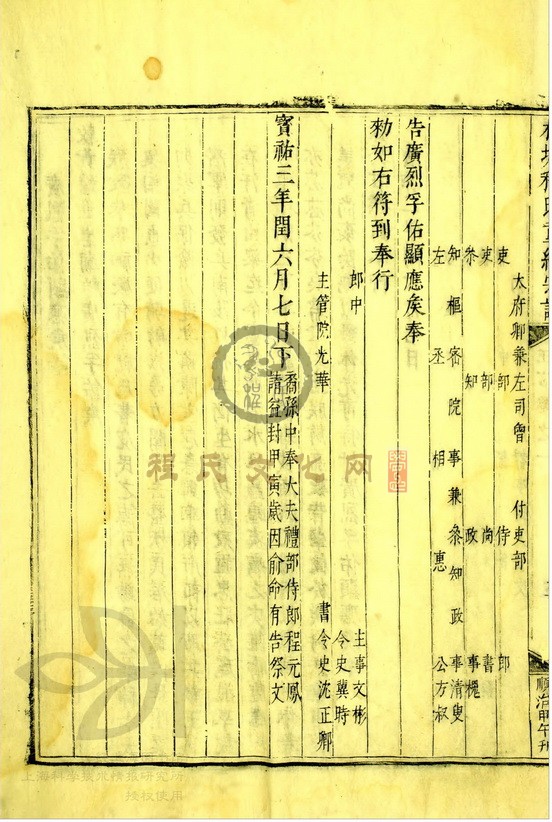 順治甲午刊
太府卿兼左司曾 付吏部
吏部侍郎
吏部尚書
叅知政事槐
知樞密院事兼叅知政事清叟
左丞相惠公方叔
告廣烈孚佑顯應矦奉
勑如右符到奉行
郎中 主事文彬
令史冀時
主管院光華 書令史沈正卿
寶祐三年閏六月七日下 裔孫中奉大夫禮部侍郎程元鳳
請益封甲寅歲因俞命有告祭文
程氏文化网
上海科学技术情报研究所
授权使用